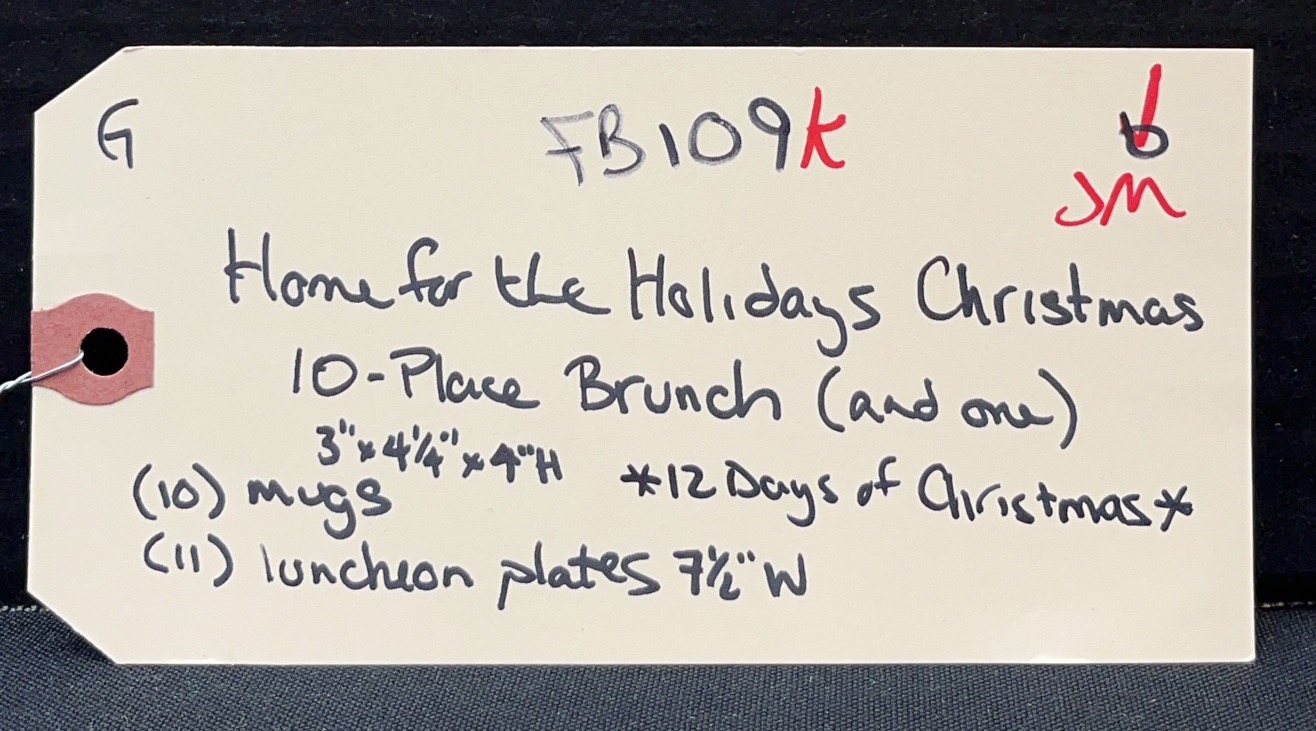 G FB109k b
JM
Home for the Holidays Christmas
10-Place Brunch (and one)
3" x 4¼" x 4"H
(10) mugs *12 Days of Christmas*
(11) luncheon plates 7½" W